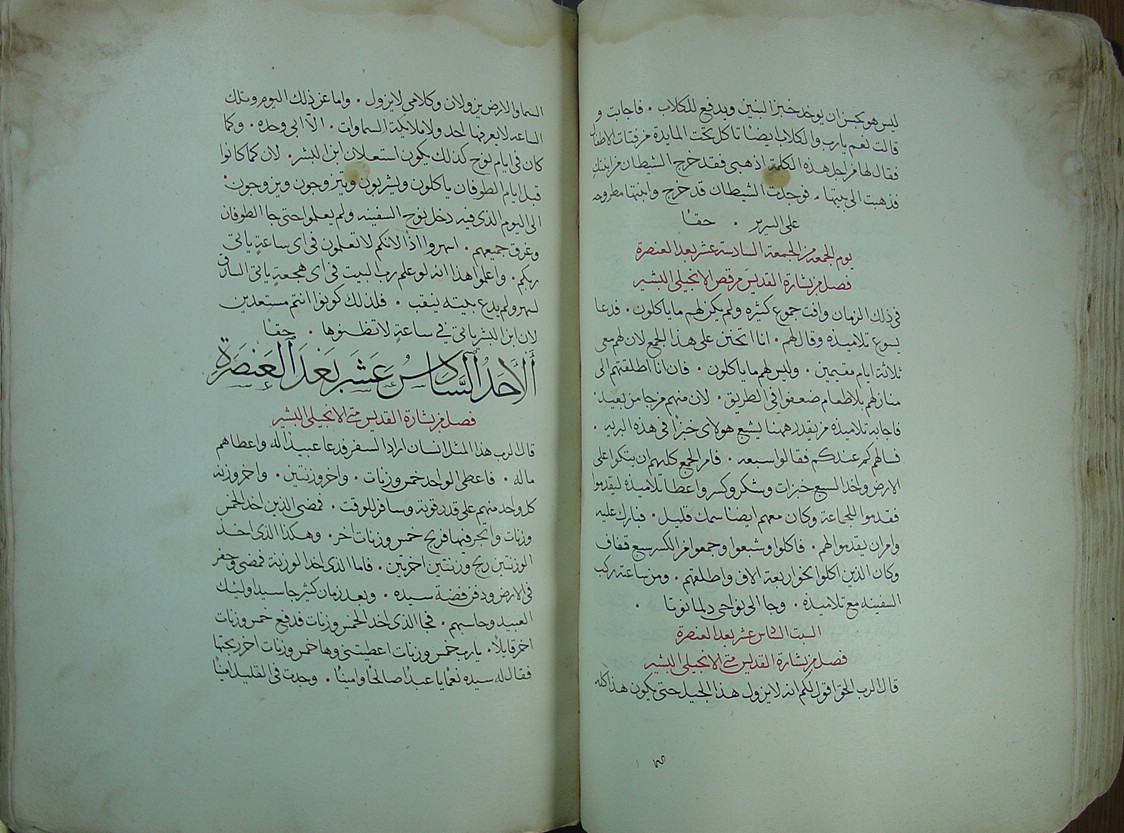 ليس هو بحسن ان يوخد خبز البنين ويدفع للكلاب . فاجابت و
قالت نعم يارب والكلاب ايضا تاكل تحت المايدة من فتات الاطفال
فقال لها من اجل هذه الكلمة اذهبي فقد خرج الشيطان من ابنتك
فذهبت الى بيتها . فوجدت الشيطان قد خرج وابنتها مطروحه
على السرير . حقا
يوم الجمعه من الجمعة السادسة عشر بعد العنصرة
فصل من بشارة القديس مرقص الانجيلي البشير
في ذلك الزمان وافت جموع كثيره ولم يكن لهم ما ياكلون . فدعا
يسوع تلاميذه وقال لهم . انا اتحنن على هذا الجمع لان لهم معي
ثلاثة ايام مقيمين . وليس لهم ما ياكلون . فان انا اطلقتهم الى
منازلهم بلا طعام ضعفوا في الطريق . لان منهم من جا من بعيد .
فاجابه تلاميذه من يقدر ههنا يشبع هولاى خبزا في هذه البريه .
فسالهم كم عندكم فقالوا سبعه . فامر الجمع كلهم ان يتكوا على
الارض واخد السبع خبزات وشكر وكسر واعطا تلاميذه ليقدموا
فقدموا للجماعة وكان معهم ايضا سمك قليل . فبارك عليه
وامر ان يقدموا لهم . فاكلوا وشبعوا وجمعوا من الكسر سبع قفاف
وكان الذين اكلوا نحو اربعة الاف واطلقهم . ومن ساعته ركب
السفينه مع تلاميذه . وجا الى نواحي دلمانوتا .
السبت السادس عشر بعد العنصرة
فصل من بشارة القديس متى الانجيلي البشير
قال الرب الحق اقول لكم انه لا يزول هذا الجيل حتى يكون هذا كله
السما والارض يزولان وكلامي لا يزول . واما عن ذلك اليوم وتلك
الساعه لا يعرفها احد ولا ملايكة السماوات . الا ابي وحده . وكما
كان في ايام نوح كذلك يكون استعلان ابن البشر . لان كما كانوا
قبل ايام الطوفان ياكلون ويشربون ويتزوجون ويزوجون .
الى اليوم الذي فيه دخل نوح السفينه ولم يعلموا حتى جا الطوفان
وغرق جميعهم . اسهروا اذا لانكم لا تعلمون في اى ساعة ياتي
ربكم . واعلموا هذا انه لو علم رب البيت في اى هجعة ياتي السارق
لسهر ولم يدع بيته ينقب . فلذلك كونوا انتم مستعدين
لان ابن البشر ياتي في ساعة لا تظنوها . حقا
ألاحد السادس عشر بعد العنصرة
فصل من بشارة القديس متى الانجيلي البشير
قال الرب هذا المثل انسان اراد السفر فدعا عبيده واعطاهم
ماله . فاعطى الواحد خمس وزنات . واخر وزنتين . واخر وزنه
كل واحد منهم على قدر قوته وسافر للوقت . فمضى الذي اخد الخمس
وزنات واتجر فيها فربح خمس وزنات اخر . وهكذا الذي اخد
الوزنتين ربح وزنتين اخرين . فاما الذي اخد الوزنة فمضى وحفر
في الارض ودفن فضة سيده . وبعد زمان كثير جا سيد اوليك
العبيد وحاسبهم . فجا الذي اخد الخمس وزنات فدفع خمس وزنات
اخر قايلا . يارب خمس وزنات اعطيتني وها خمس وزنات اخر ربحتها
فقال له سيده نعما يا عبدا صالحا وامينا . وجدت في القليل امينا